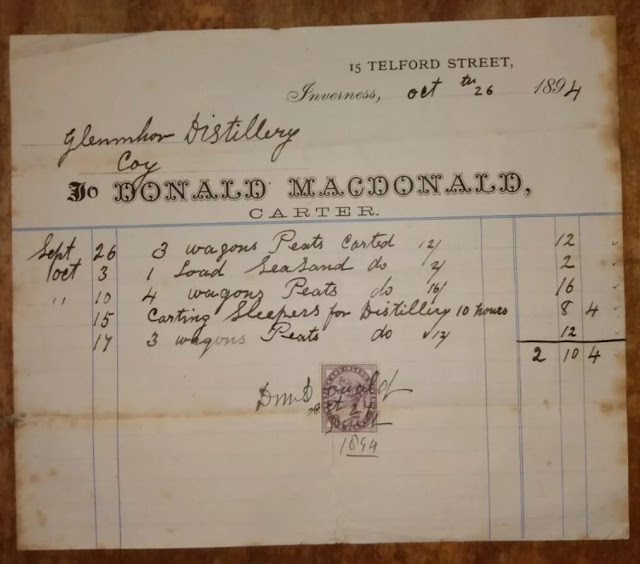 15 TELFORD STREET,
Inverness, Oct 26th 1894
Glenmhor Distillery
Coy
To DONALD MACDONALD,
CARTER.
Sept 26 3 wagons Peats Carted 12/ 12
Oct 3 1 Load SeaSand do 2/ 2
" 10 4 wagons Peats do 16/ 16
15 Carting Sleepers for Distillery 10 hours 8 4
17 3 wagons Peats do 12/ 12
2 10 4
1894